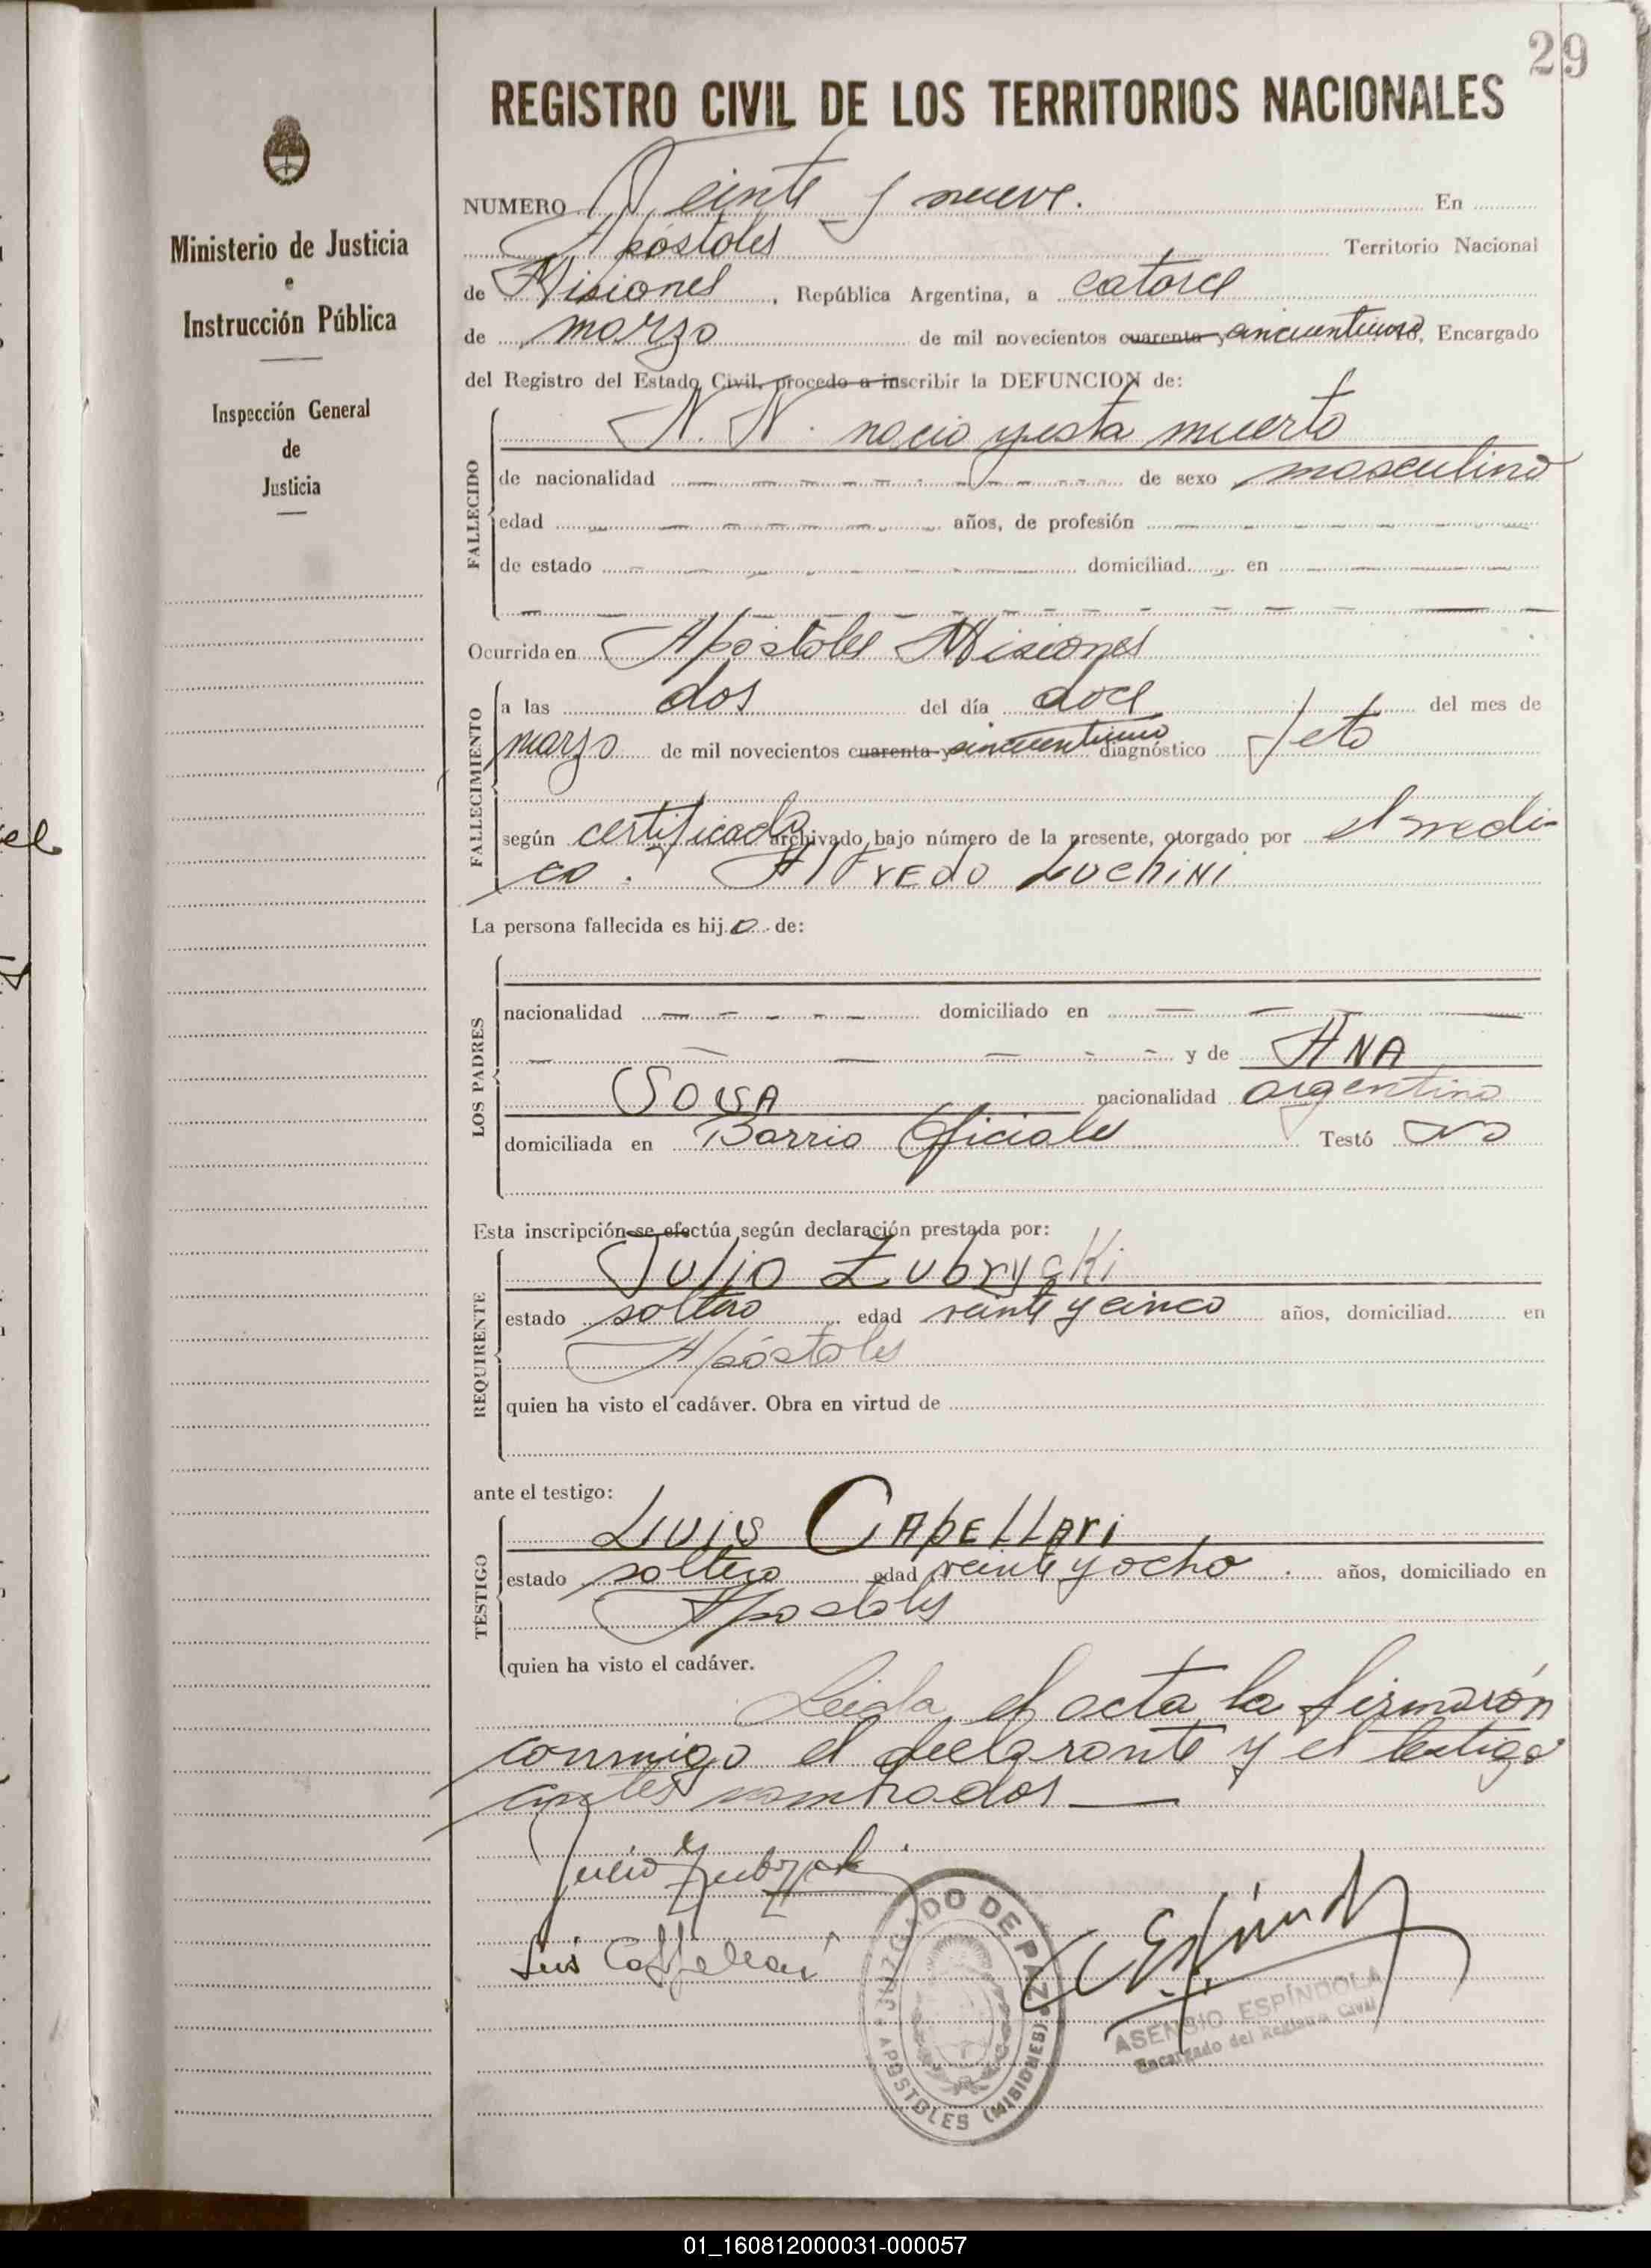 29
REGISTRO CIVIL DE LOS TERRITORIOS NACIONALES
Ministerio de Justicia
e
Instrucción Pública
Inspección General
de
Justicia
NUMERO Veinte y nueve. En
Apóstoles Territorio Nacional
de Misiones, República Argentina, a catorce
de marzo de mil novecientos cuarenta y cincuentiuno, Encargado
del Registro del Estado Civil, procedo a inscribir la DEFUNCION de:
FALLECIDO
N. N. nacio y esta muerto
de nacionalidad de sexo masculino
edad años, de profesión
de estado domiciliad en
Ocurrida en Apostoles Misiones
FALLECIMIENTO
a las dos del día doce del mes de
marzo de mil novecientos cuarenta y cincuentiuno diagnóstico feto
según certificado archivado bajo número de la presente, otorgado por el medi-
co. Alfredo Luchini
La persona fallecida es hijo de:
LOS PADRES
nacionalidad domiciliado en
y de ANA
SOUSA nacionalidad argentina
domiciliada en Barrio Oficiales Testó no
Esta inscripción se efectúa según declaración prestada por:
REQUIRENTE
Julio Zubrycki
estado soltero edad veinte y cinco años, domiciliad en
Apóstoles
quien ha visto el cadáver. Obra en virtud de
ante el testigo:
TESTIGO
Luis Capellari
estado soltero edad veinte y ocho años, domiciliado en
Apostoles
quien ha visto el cadáver.
Leida el acta la firmarón
conmigo el declarante y el testigo
antes nombrados
Julio
Luis Cappellari
JUZGADO DE PAZ
APOSTOLES (MISIONES)
ASENSIO ESPÍNDOLA
Encargado del Registro Civil
01_160812000031-000057